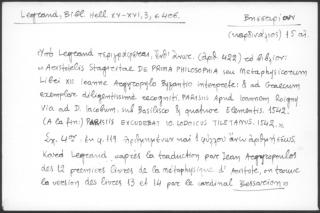 Legrand, Bibl. Hell. XV-XVI, 3, σ. 406.
Βησσαρίων
(καρδινάλιος) 15 αἰ.
Ὑπὸ Legrand περιγράφεται, ὑπ' (ἀρ. 422)
« Aristotelis Stagiritae DE PRIMA PHILOSOPHIA seu Metaphysicorum
Libri XII Ioanne Argyropylo Byzantio interprete: & ad Graecum
exemplar diligentissime recogniti. PARISIIS Apud Ioannem Roigny
via ad D. Iacobum, sub Basilisco & quatuor Elementis. 1542.
(A la fin:) PARISIIS EXCUDEBAT LODOICUS TILETANUS. 1542. »
Σχ. 4ον. 119 ἀριθμημένων καὶ 1 φύλλου ἄνευ ἀριθμήσεως
Κατὰ Legrand «après la traduction par Jean Argyropoulos
des 12 premiers livres de la métaphysique d'Aristote, on trouve
la version des livres 13 et 14 par le cardinal Bessarion»